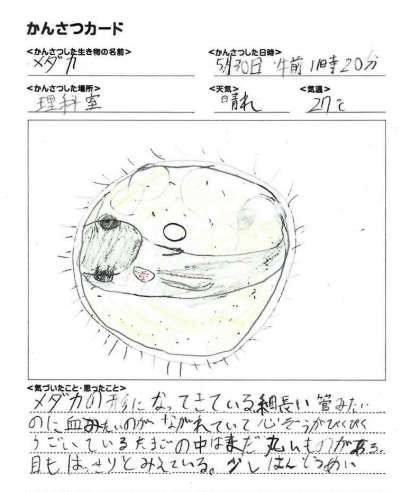 かんさつカード
<かんさつした生き物の名前>
メダカ
<かんさつした日時>
5月30日 午前 11時20分
<かんさつした場所>
理科室
<天気>
晴れ
<気温>
27℃
<気づいたこと・思ったこと>
メダカの形になってきている細長い管みたい
のに血みたいのがながれていて心ぞうがぴくぴく
うごいているたまごの中はまだ丸いものがある。
目もはっきりとみえている。少しはんとうめい